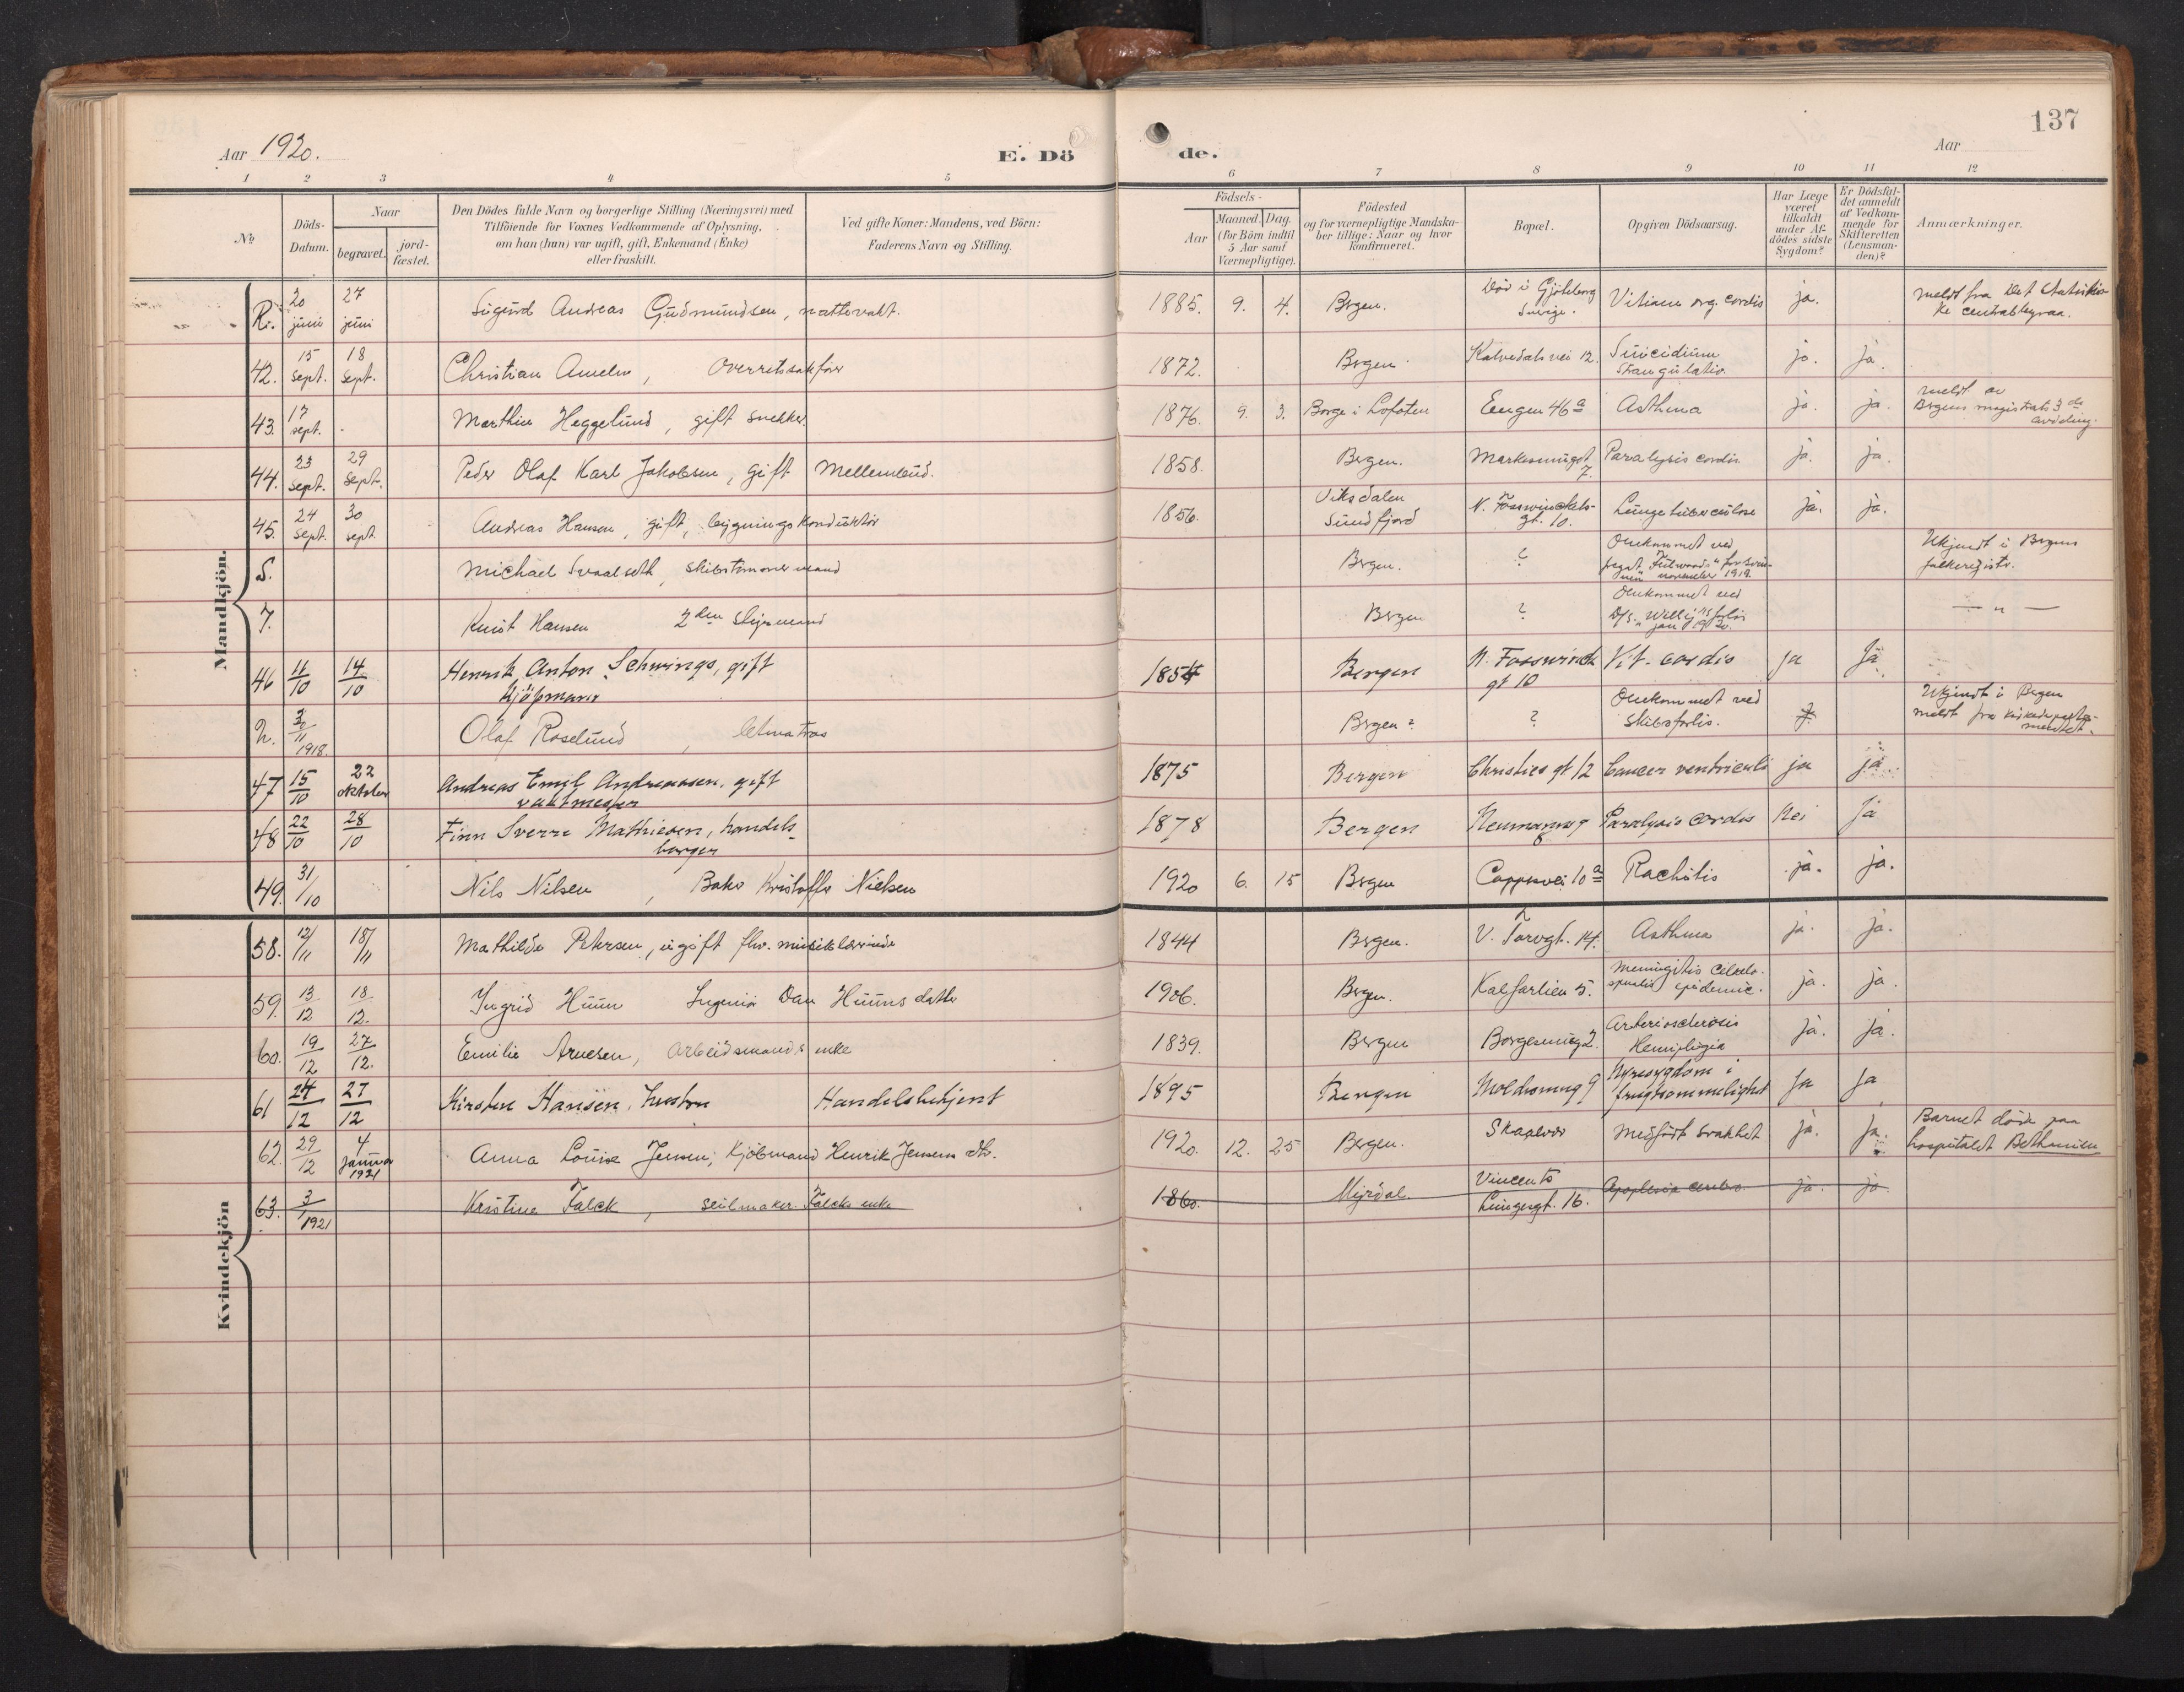 137
Aar 1920. E. Dö de. Aar
1 2 3 4 5 6 7 8 9 10 11 12
No
Döds-
Datum.
Naar
begravet.
jord-
fæstet.
Den Dödes fulde Navn og borgerlige Stilling (Næringsvei) med
Tilföiende for Voxnes Vedkommende af Oplysning,
om han (hun) var ugift, gift, Enkemand (Enke)
eller fraskilt.
Ved gifte Koner: Mandens, ved Börn:
Faderens Navn og Stilling.
Födsels-
Aar
Maaned. Dag.
(for Börn indtil
5 Aar samt
Værnepligtige).
Födested
og for værnepligtige Mandska-
ber tillige: Naar og hvor
konfirmeret.
Bopæl.
Opgiven Dödsaarsag.
Har Læge
været
tilkaldt
under Af-
dödes sidste
Sygdom?
Er Dödsfal-
det anmeldt
af Vedkom-
mende for
Skifteretten
(Lensman-
den)?
Anmærkninger.
Mandkjön.
R. 20 juni 27 juni Sigurd Andreas Gudmundsen, nattevakt. 1885. 9. 4. Brgen. Död i Gjöteborg Sverige. Vitium org. cordis ja. meldt fra Det statistis-
ke centralbyraa.
42. 15 sept. 18 sept. Christian Ameln, Overretssakförer 1872. Brgen. Kalvedalsvei 12. Suicidium Strangulatio ja. ja.
43. 17 sept. Marthin Heggelund, gift snekker. 1876. 9. 3. Borge i Lofoten Engen 46a Asthma ja. ja. meldt av
Brgens magistrats 3de
avdeling.
44. 23 sept. 29 sept. Peder Olaf Karl Jakobsen, gift Mellembud. 1858. Bergen. Markesmugt 7. Paralysis cordis ja. ja.
45. 24 sept. 30 sept. Andreas Hansen, gift, bygningskonduktör 1856. Viksdalen Sundfjord N. Fosswinckels-
gt. 10. Lungetuberculose ja. ja.
S. Michael Svaalseth skibstömmermand Brgen. ? Omkommet ved
november 1919. Ukjendt i Brgens
folkeregister.
7. Knut Hansen 2den styrmand Brgen ? Omkommet ved
D/S. "Willy"s forlis
jan 1920. — " —
46 11/10 14/10 Henrik Anton Schwings, gift
Kjöpmann 1854 Bergen N. Fosswinck
gt 10 Vit. cordis ja Ja
h. 3/11 1918. Olaf Roselund, letmatros Brgen? ? Omkommet ved
skibsforlis. ? Ukjendt i Bergen
meldt fra Kirkedeparte-
mentet.
47 15/10 22 oktober Andreas Emil Andreassen, gift
vaktmester 1875 Bergen Christies gt 12 Cancer ventriculi ja ja
48 22/10 28/10 Finn Sverre Mathiesen, handels-
borger 1878 Bergen Neumannsg 8 Paralysis cordis Nei Ja
49. 31/10 Nils Nilsen, Baker Kristoffer Nielsen 1920 6. 15 Brgen Cappesvei 10a Rachitis ja. ja.
Kvindekjön
58. 12/11 18/11 Mathilde Petersen, ugift fhv. musiklærerinde 1844 Brgen. V. Torvgt. 14. Asthma ja. ja.
59. 13/12 18/12. Ingrid Huun Ingeniör Dan Huuns datter 1906. Brgen. Kalfarlien 5. Meningitis cerebro-
spinalis epidemic. ja. ja.
60. 19/12 27/12. Emilie Arnesen, arbeidsmands enke 1839. Bergen Borgesmug 2. Arteriosclerosis
Hemiplegia ja. ja.
61 24/12 27/12 Kirsten Hansen, hustru Handelsbetjent 1895 Bergen Moldesmug 9 Nyresygdom i
frugtsommelighet Ja Ja
62. 29/12 4 janua 1921 Anna Louise Jensen, Kjöbmand Henrik Jensens dtr. 1920. 12. 25 Bergen. Skaplvor Medfödt svakhet ja. ja. Barnet döde paa
hospitalet Bethanien
63. 3/1 1921 Kristine Falck, seilmaker Falcks enke 1860. Myrdal Vincents
Lungegt. 16. Apoplexia cerebr. ja. ja